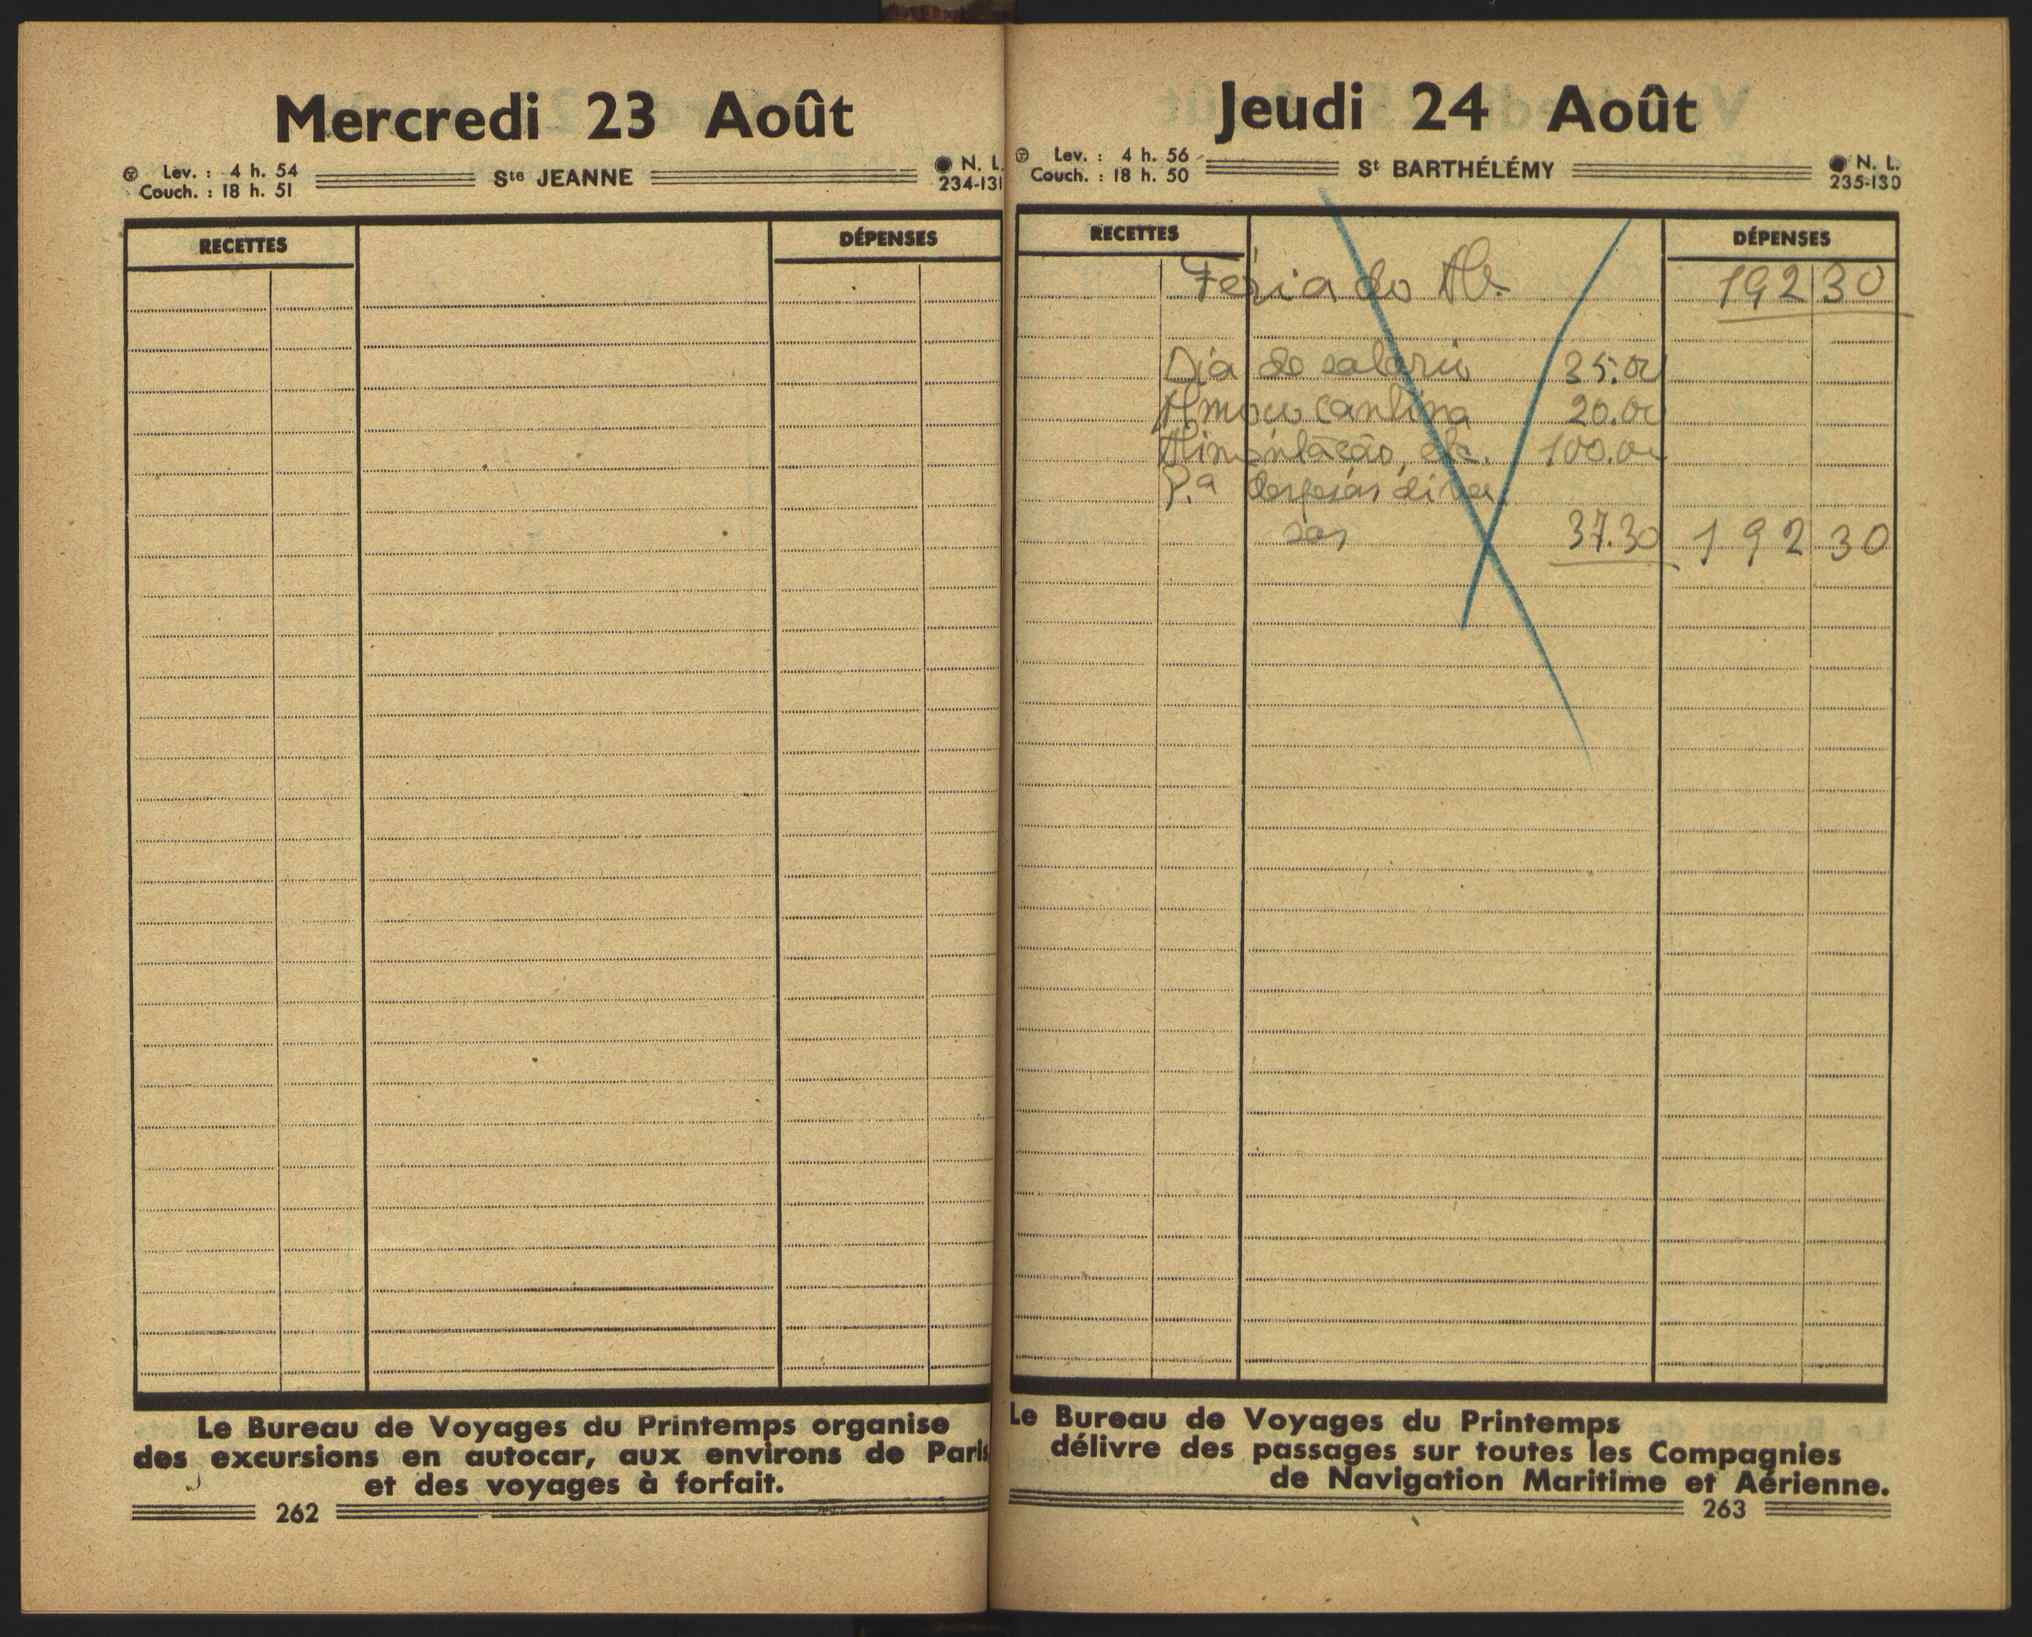 Mercredi 23 Août
Lev. : 4 h. 54
Couch. : 18 h. 51
Ste JEANNE
N. L.
234-131
RECETTES
DÉPENSES
Le Bureau de Voyages du Printemps organise
des excursions en autocar, aux environs de Paris
et des voyages à forfait.
262
Jeudi 24 Août
Lev. : 4 h. 56
Couch. : 18 h. 50
St BARTHÉLÉMY
N. L.
235-130
RECETTES
DÉPENSES
Féria do 192 30
Dia de salario 35.00
Almoço cantina 20.00
Alimentação, etc. 100.00
P.a despesas diver
sas 37.30 192 30
Le Bureau de Voyages du Printemps
délivre des passages sur toutes les Compagnies
de Navigation Maritime et Aérienne.
263